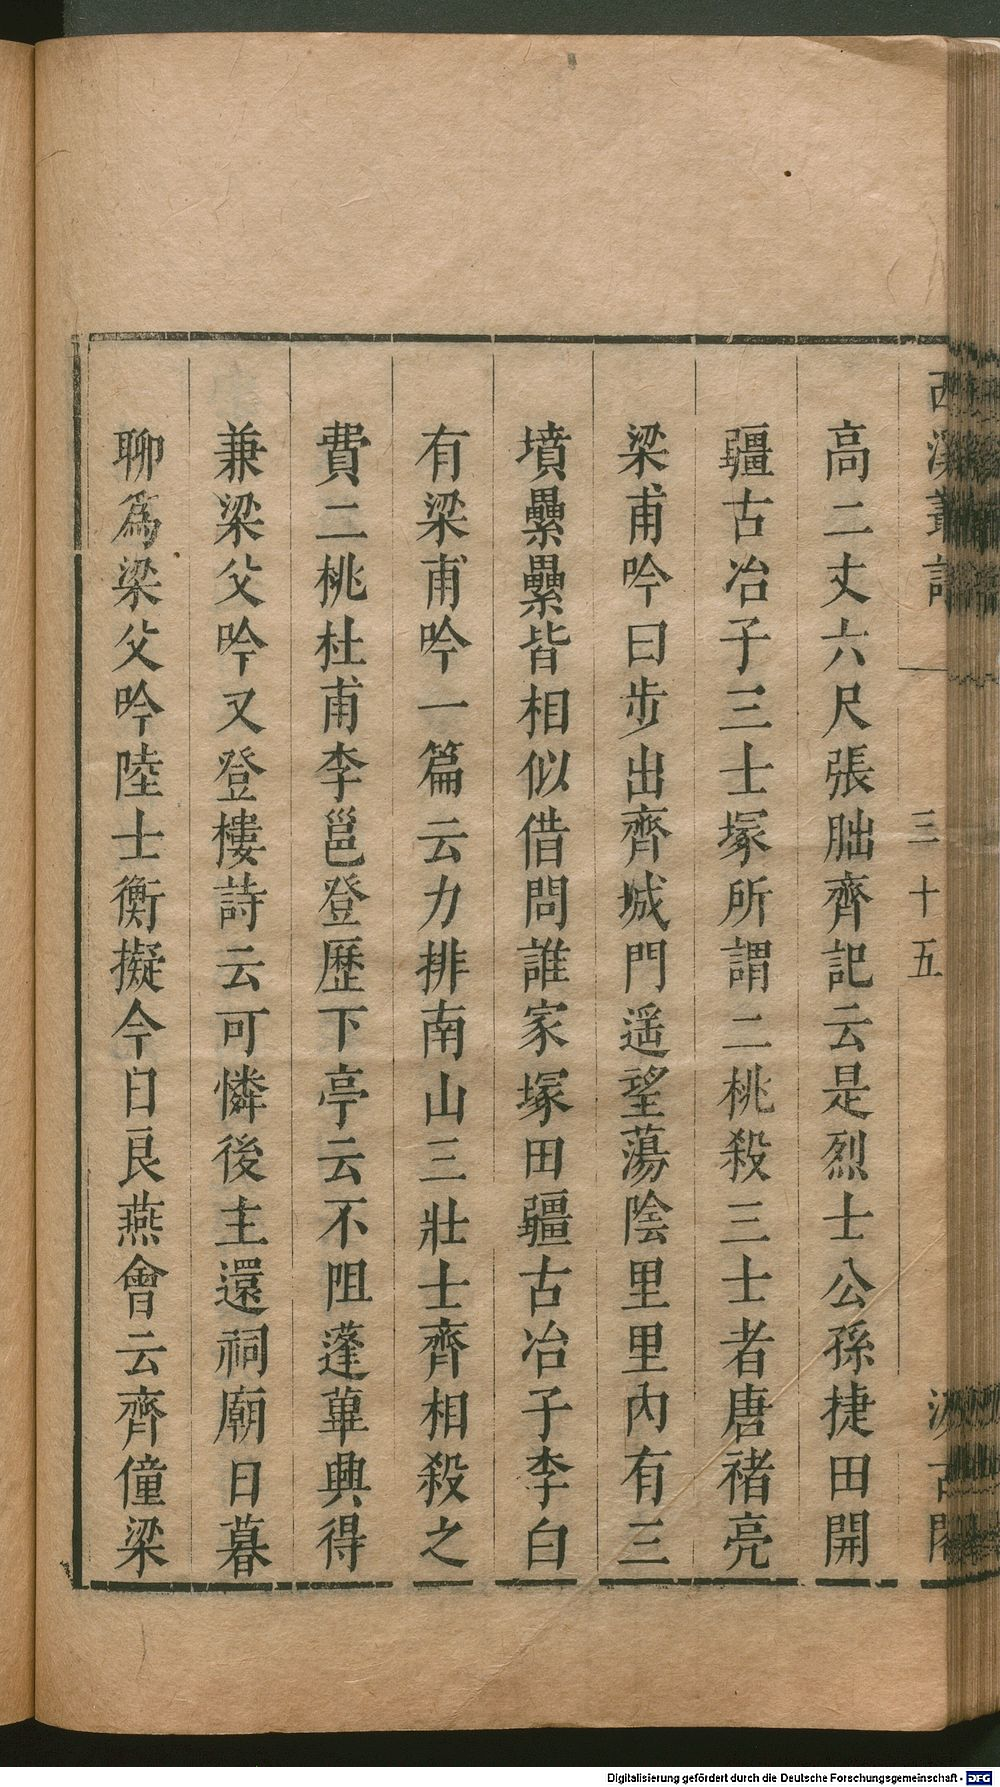 西溪叢語
三十五
汲古閣
高二丈六尺張朏齊記云是烈士公孫捷田開
疆古冶子三士塚所謂二桃殺三士者唐禇亮
梁甫吟曰步出齊城門遥望蕩陰里里內有三
墳纍纍皆相似借問誰家塚田疆古冶子李白
有梁甫吟一篇云力排南山三壯士齊相殺之
費二桃杜甫李邕登歷下亭云不阻蓬蓽興得
兼梁父吟又登樓詩云可憐後主還祠廟日暮
聊爲梁父吟陸士衡擬今日良燕會云齊僮梁
Digitalisierung gefördert durch die Deutsche Forschungsgemeinschaft - DFG